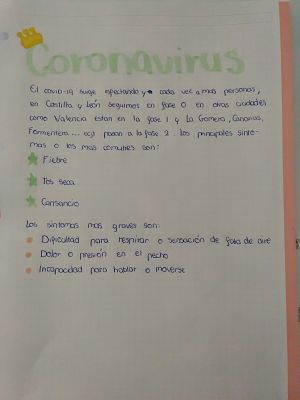 Coronavirus
El covid-19 sige afectando y a cada vez a mas personas,
en Castilla y León seguimos en fase 0 en otras ciudades
como Valencia estan en la fase 1 y La Gomera, Canarias,
Formentera... ect pasan a la fase 2. Los principales sinto-
mas o los mas comunes son:
Fiebre
Tos seca
Cansancio
Los sintomas mas graves son:
Dificultad para respirar o sensación de falta de aire
Dolor o presión en el pecho
Incapacidad para hablar o moverse